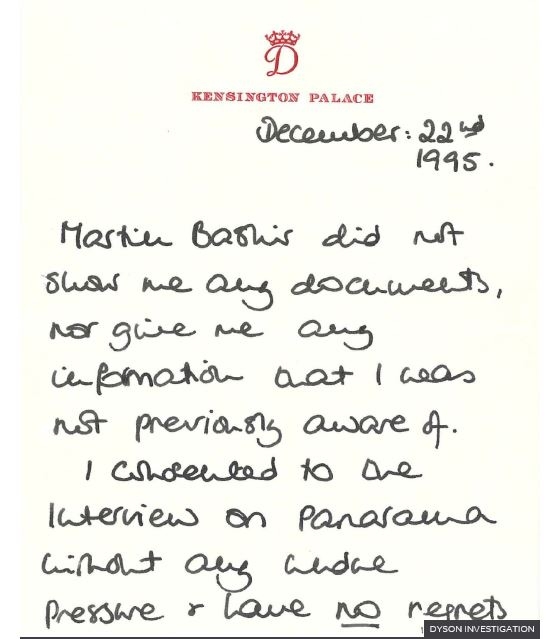 D
KENSINGTON PALACE
December: 22nd
1995.
Martin Bashir did not
show me any documents,
nor give me any
information that I was
not previously aware of.
I consented to the
interview on Panorama
without any undue
pressure & have no regrets
DYSON INVESTIGATION